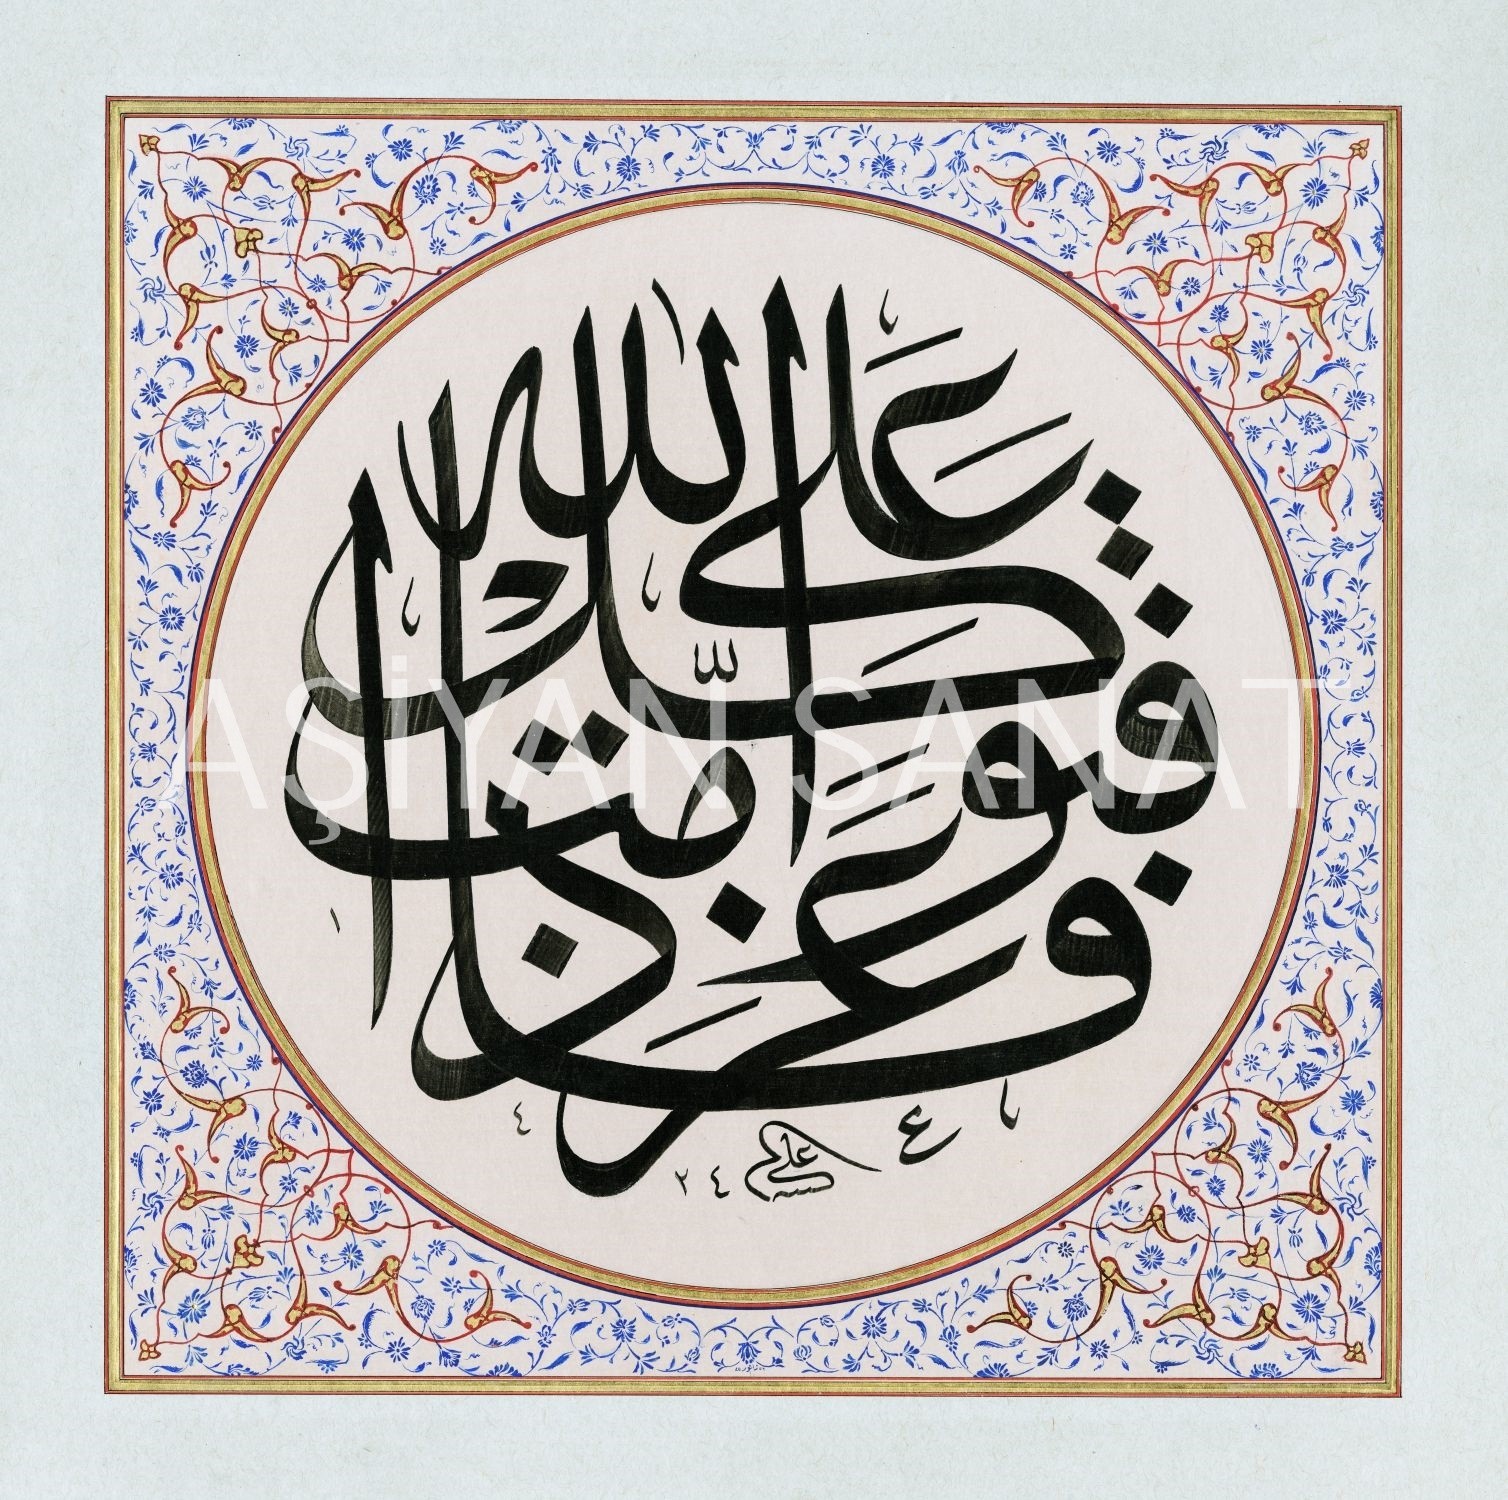 فاذا عزمت فتوكل على الله
علي ٢٤
AŞİYAN SANAT